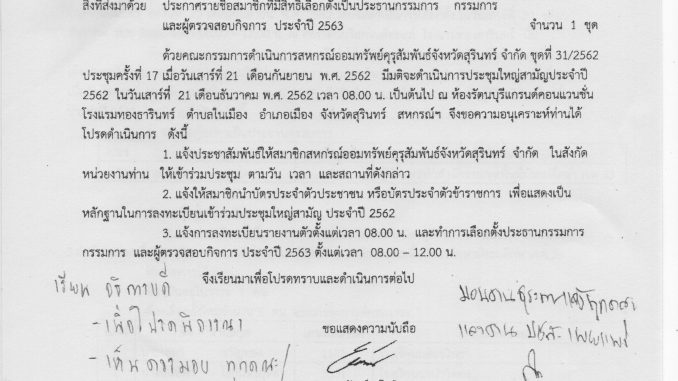 สิ่งที่ส่งมาด้วย ประกาศรายชื่อสมาชิกที่มีสิทธิเลือกตั้งเป็นประธานกรรมการ กรรมการ
และผู้ตรวจสอบกิจการ ประจำปี 2563 จำนวน 1 ชุด
ด้วยคณะกรรมการดำเนินการสหกรณ์ออมทรัพย์คุรุสัมพันธ์จังหวัดสุรินทร์ จำกัด ชุดที่ 31/2562
ประชุมครั้งที่ 17 เมื่อวันเสาร์ที่ 21 เดือนกันยายน พ.ศ. 2562 มีมติจะดำเนินการประชุมใหญ่สามัญประจำปี
2562 ในวันเสาร์ที่ 21 เดือนธันวาคม พ.ศ. 2562 เวลา 08.00 น. เป็นต้นไป ณ ห้องรัตนบุรีแกรนด์คอนแวนชั่น
โรงแรมทองธารินทร์ ตำบลในเมือง อำเภอเมือง จังหวัดสุรินทร์ สหกรณ์ฯ จึงขอความอนุเคราะห์ท่านได้
โปรดดำเนินการ ดังนี้
1. แจ้งประชาสัมพันธ์ให้สมาชิกสหกรณ์ออมทรัพย์คุรุสัมพันธ์จังหวัดสุรินทร์ จำกัด ในสังกัด
หน่วยงานท่าน ให้เข้าร่วมประชุม ตามวัน เวลา และสถานที่ดังกล่าว
2. แจ้งให้สมาชิกนำบัตรประจำตัวประชาชน หรือบัตรประจำตัวข้าราชการ เพื่อแสดงเป็น
หลักฐานในการลงทะเบียนเข้าร่วมประชุมใหญ่สามัญ ประจำปี 2562
3. แจ้งการลงทะเบียนรายงานตัวตั้งแต่เวลา 08.00 น. และทำการเลือกตั้งประธานกรรมการ
กรรมการ และผู้ตรวจสอบกิจการ ประจำปี 2563 ตั้งแต่เวลา 08.00 – 12.00 น.
จึงเรียนมาเพื่อโปรดทราบและดำเนินการต่อไป
เรียน อธิการบดี
- เพื่อโปรดพิจารณา
ขอแสดงความนับถือ
- เห็นควรมอบ ทุกคณะ/